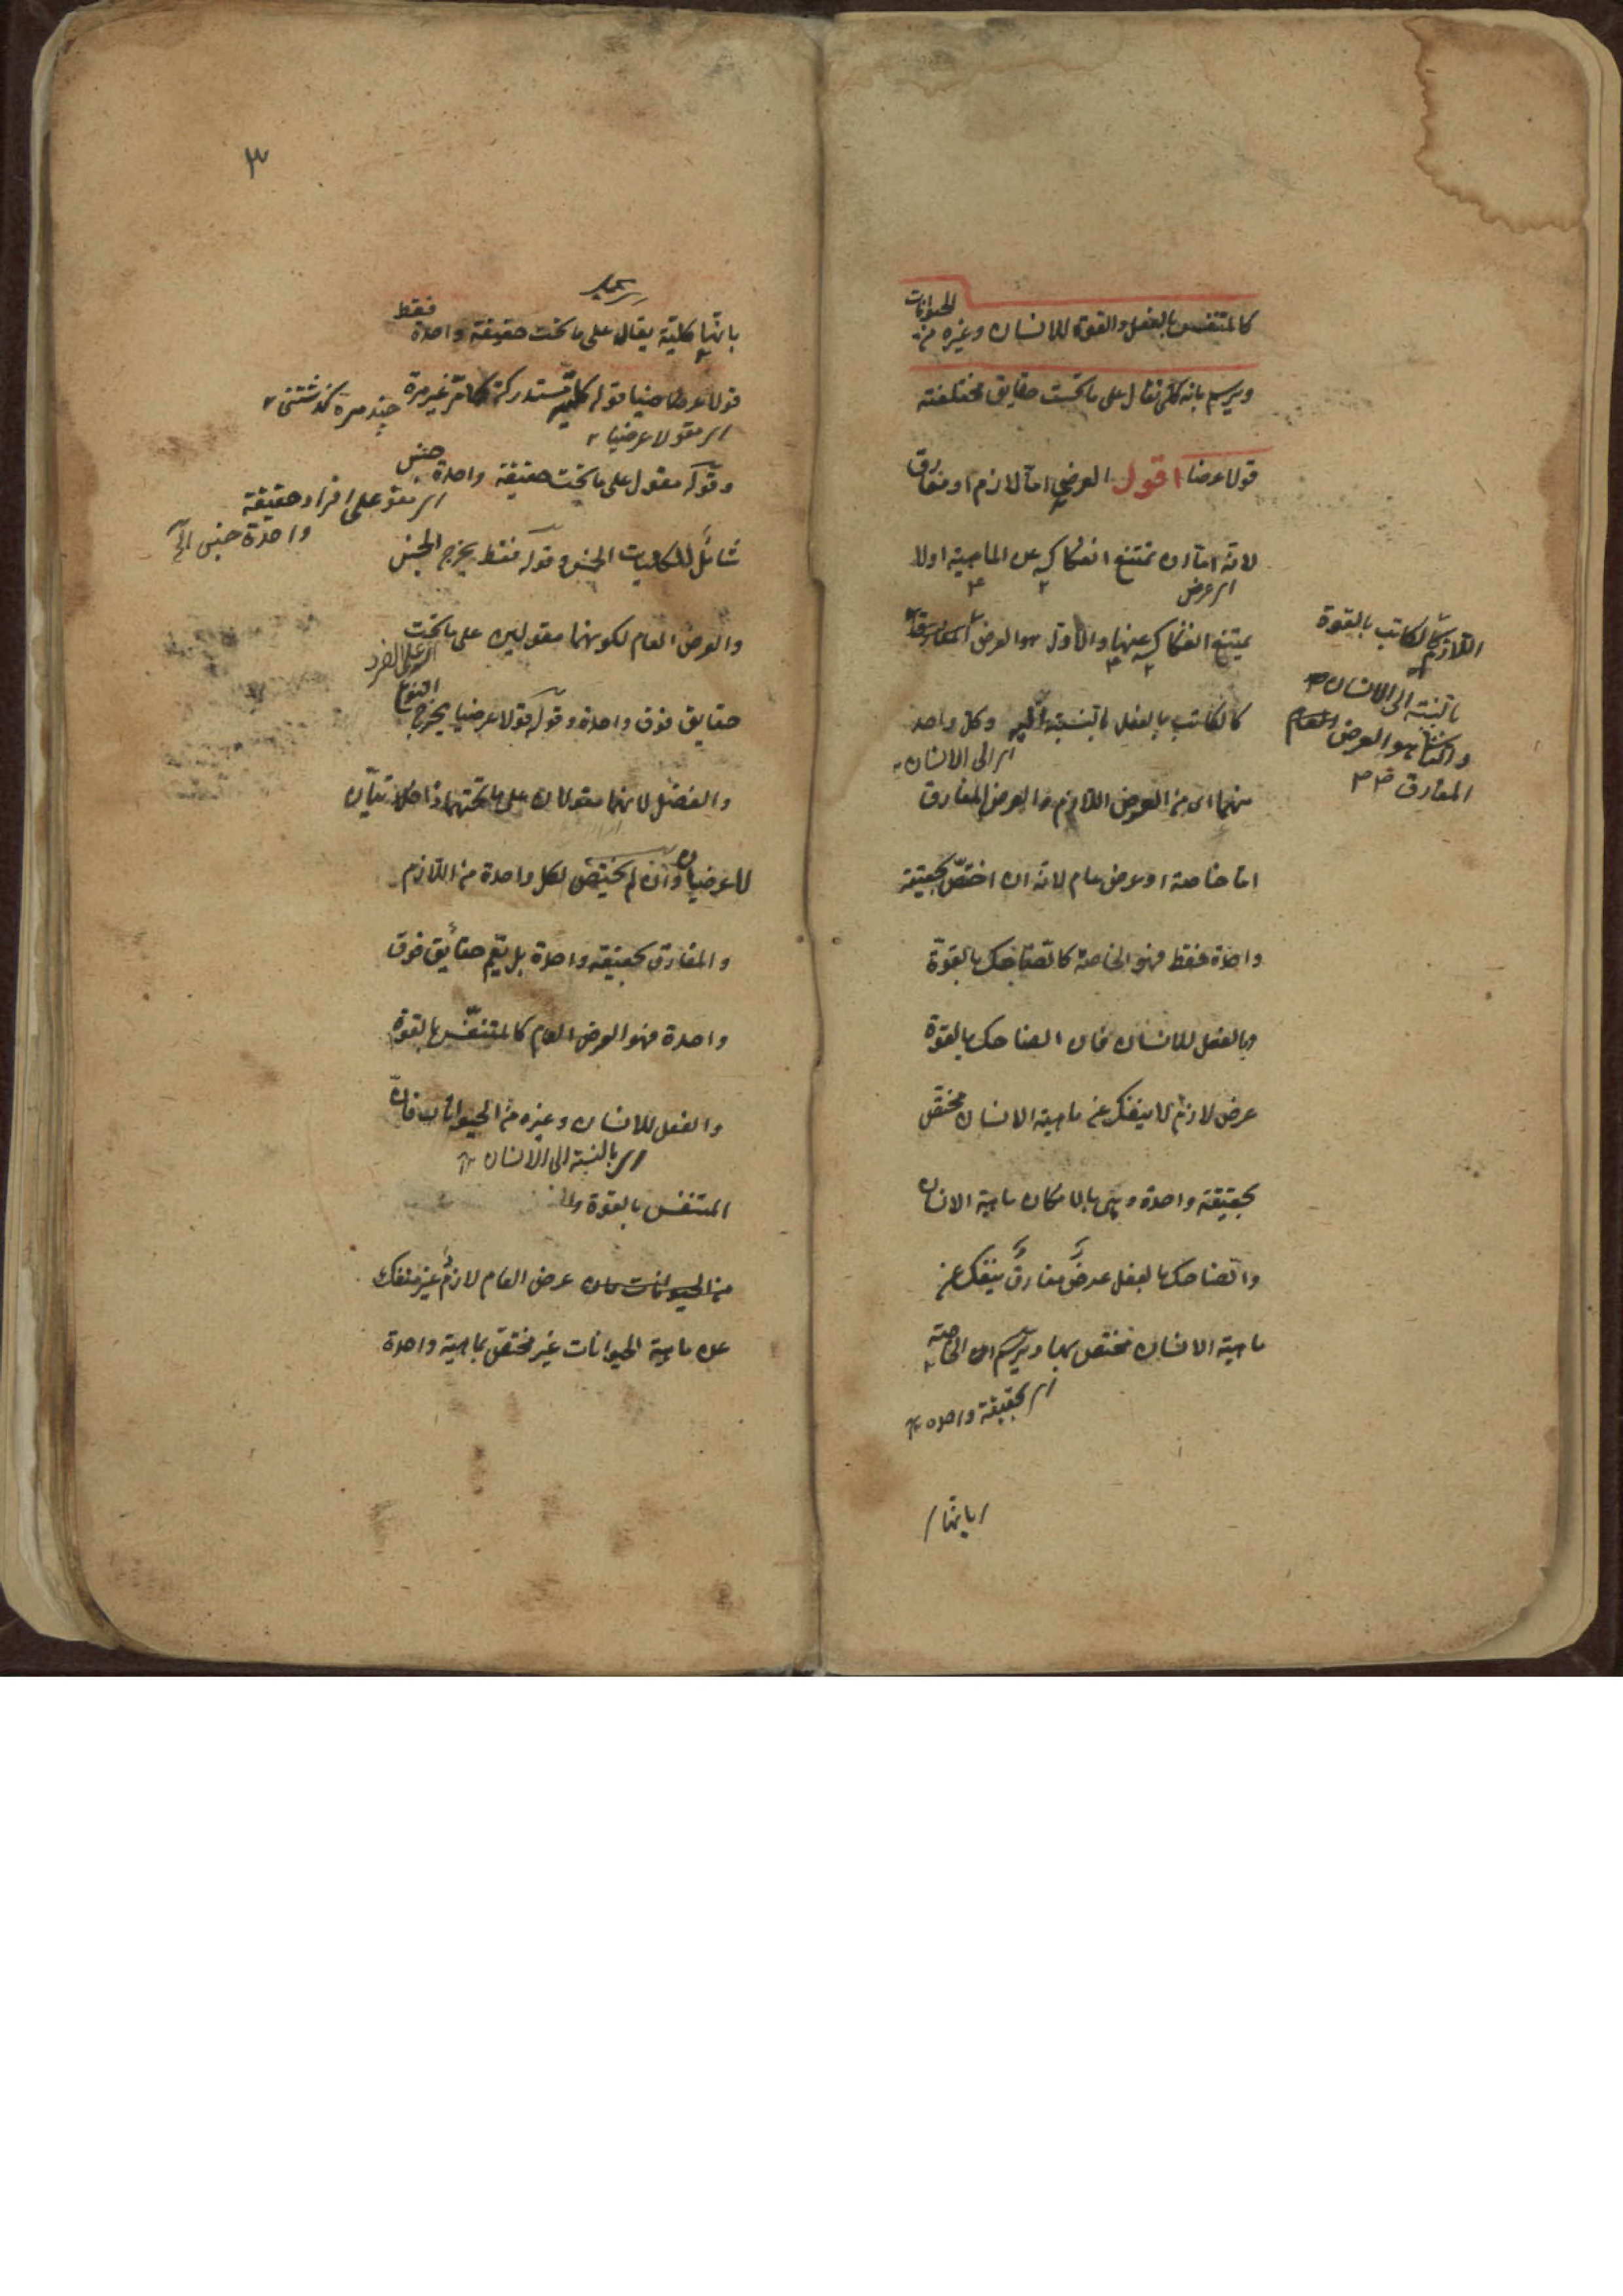 كالمتنفس بالفعل والقوة للانسان وغيره من الحيوانات
ويرسم بانه كلى يقال على ما تحت حقايق مختلفة
قولا عرضيا اقول العرضى اما لازم او مفارق
لانه اما ان يمتنع انفكاكه عن الماهية اولا
اى عرض
يمتنع انفكاكه عنها والاول هو العرض المفارق
كالكاتب بالفعل بالنسبة اليه وكل واحد
اى الى الانسان
منهما اى من العرض اللازم والعرض المفارق
اما خاصة او عرض عام لانه ان اختص بحقيقة
واحدة فقط فهو الخاصة كالضاحك بالقوة
وبالفعل للانسان فان الضاحك بالقوة
عرض لازم لا ينفك عن ماهية الانسان مختص
بحقيقة واحدة وهى بالامكان ماهية الانسان
والضاحك بالفعل عرض مفارق ينفك عن
ماهية الانسان مختص بها ويرسم اى الخاصة
اى بحقيقة واحده
بانها
اللازم كالكاتب بالقوة
بالنسبة الى الانسان
والثانى هو العرض العام
المفارق
٣
بانها كلية يقال على ما تحت حقيقة واحدة فقط
قولا عرضيا قوله كلية مستدركة كما مر غير مرة
چند مرة گذشتنى
اى مقولا عرضيا
وقوله مقول على ما تحت حقيقة واحدة جنس
اى مقو على افراد حقيقة
واحدة جنس الخ
شامل للكليات الخمس وقوله فقط يخرج الجنس
والعرض العام لكونهما مقولين على ما تحت
حقايق فوق واحدة وقوله قولا عرضيا يخرج النوع
والفصل لانهما مقولان على ما تحتهما ذاتيان
لا عرضيان وان لم يختص لكل واحدة من اللازم
والمفارق بحقيقة واحدة بل يعم حقائق فوق
واحدة فهو العرض العام كالمتنفس بالقوة
والفعل للانسان وغيره من الحيوانات فان
اى بالنسبة الى الانسان
المتنفس بالقوة
من الحيوانات عرض العام لازم غير منفك
عن ماهية الحيوانات غير مختص بماهية واحدة